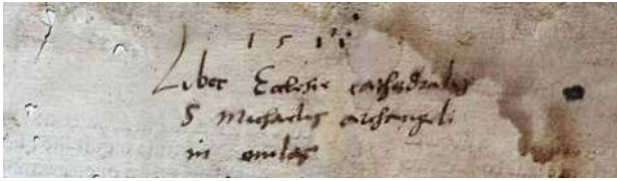 1511
Liber Ecclesie cathedralis
S Michaelis archangeli
in